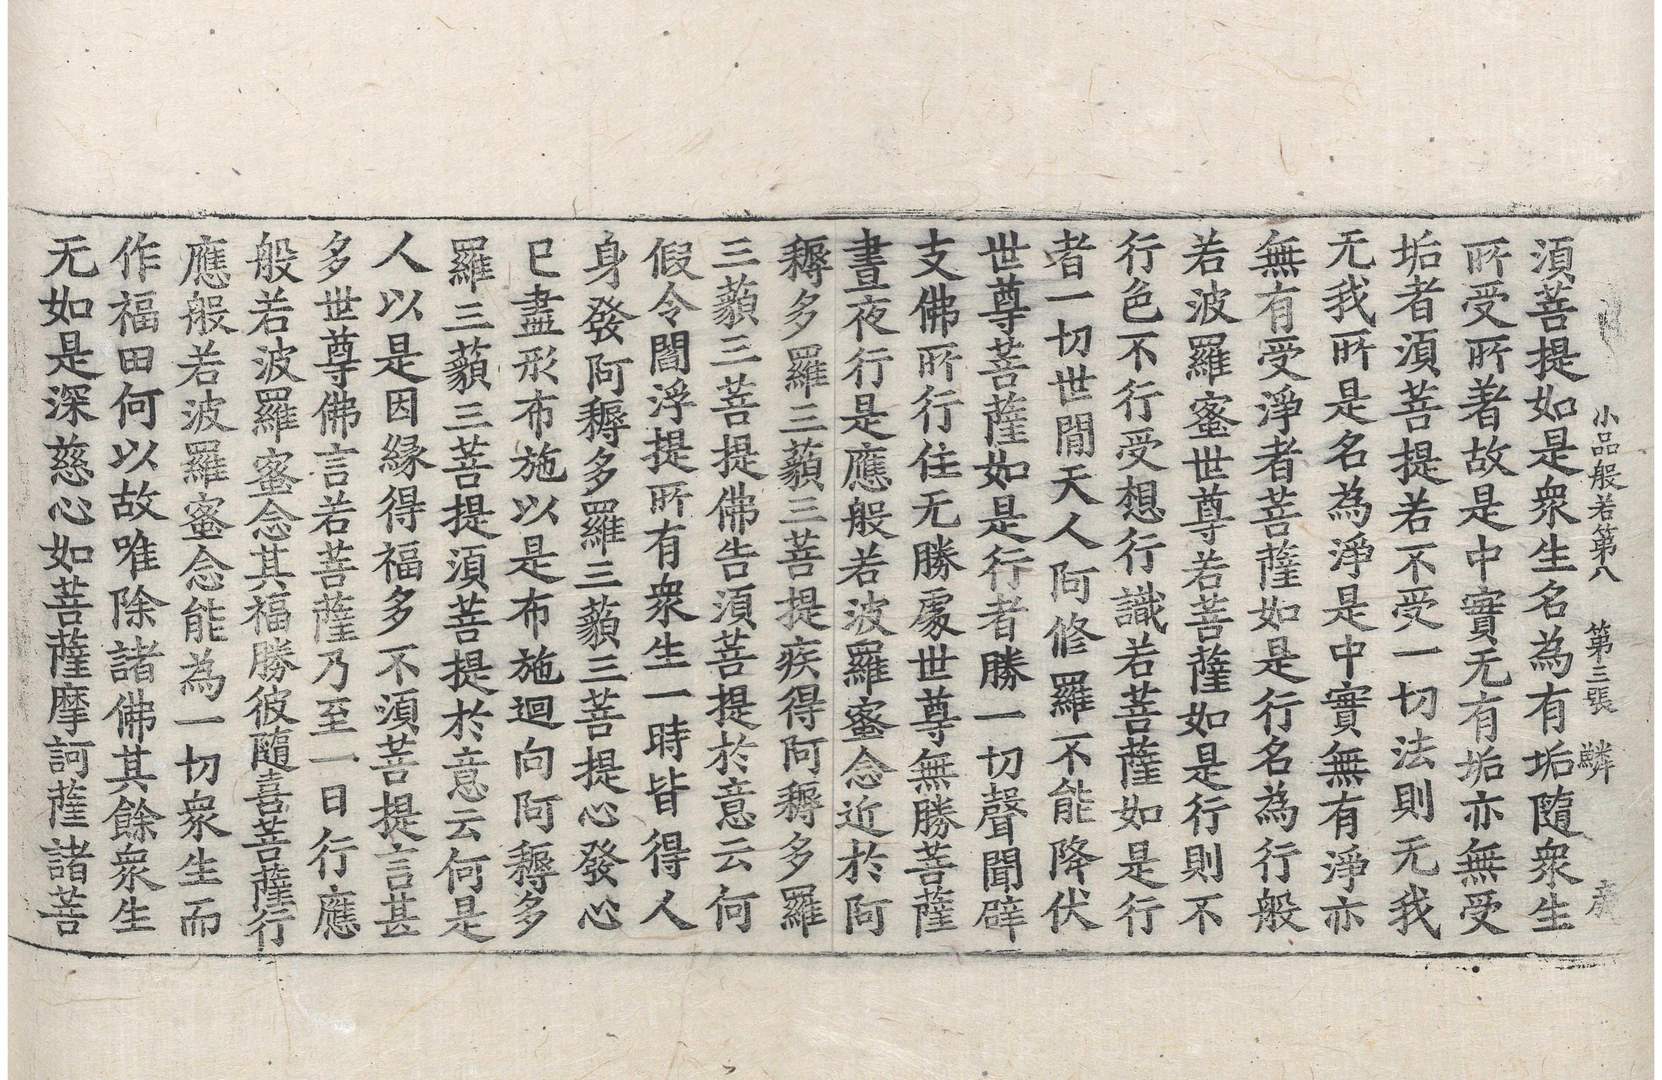 小品般若第八　第三張　鱗
須菩提如是衆生名為有垢隨衆生
所受所著故是中實无有垢亦無受
垢者須菩提若不受一切法則无我
无我所是名為淨是中實無有淨亦
無有受淨者菩薩如是行名為行般
若波羅蜜世尊若菩薩如是行則不
行色不行受想行識若菩薩如是行
者一切世間天人阿修羅不能降伏
世尊菩薩如是行者勝一切聲聞辟
支佛所行住无勝處世尊無勝菩薩
晝夜行是應般若波羅蜜念近於阿
耨多羅三藐三菩提疾得阿耨多羅
三藐三菩提佛告須菩提於意云何
假令閻浮提所有衆生一時皆得人
身發阿耨多羅三藐三菩提心發心
已盡形布施以是布施迴向阿耨多
羅三藐三菩提須菩提於意云何是
人以是因緣得福多不須菩提言甚
多世尊佛言若菩薩乃至一日行應
般若波羅蜜念其福勝彼隨喜菩薩行
應般若波羅蜜念能為一切衆生而
作福田何以故唯除諸佛其餘衆生
无如是深慈心如菩薩摩訶薩諸菩